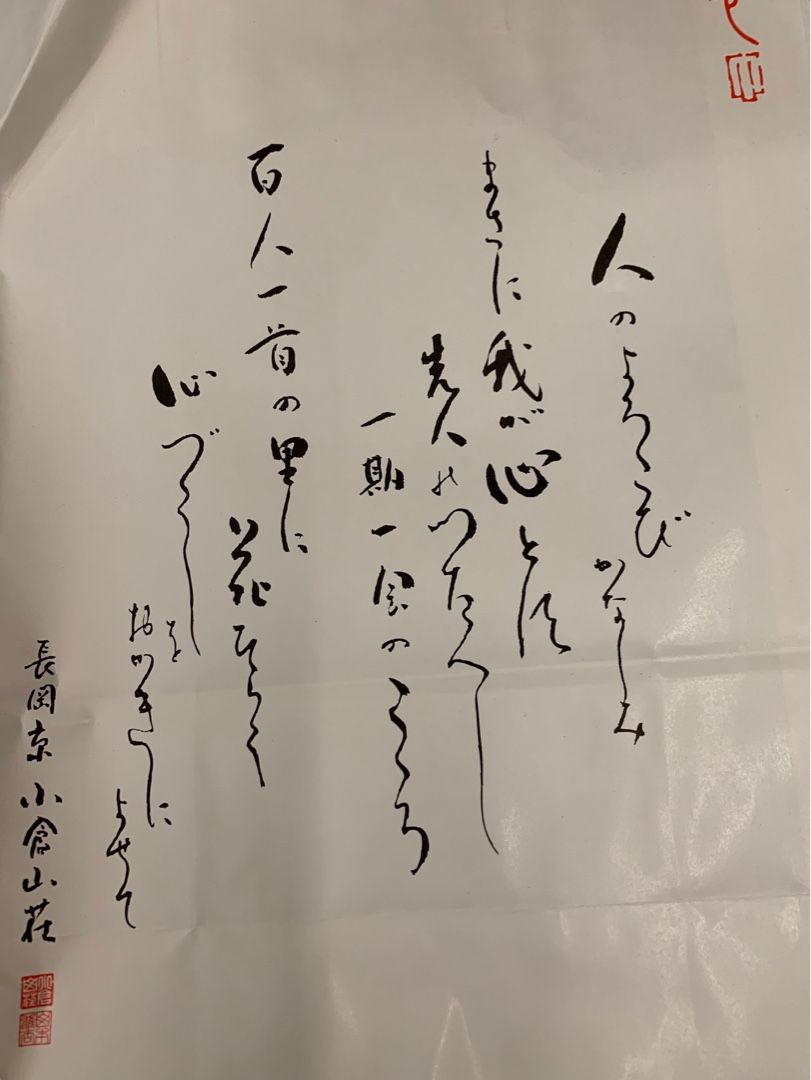 人のよろこび かなしみ
まさに我が心とす
先人のつたへし
一期一会のこゝろ
百人一首の里に
花ひらく
心づくし
を
おかきに
よせて
長岡京 小倉山荘